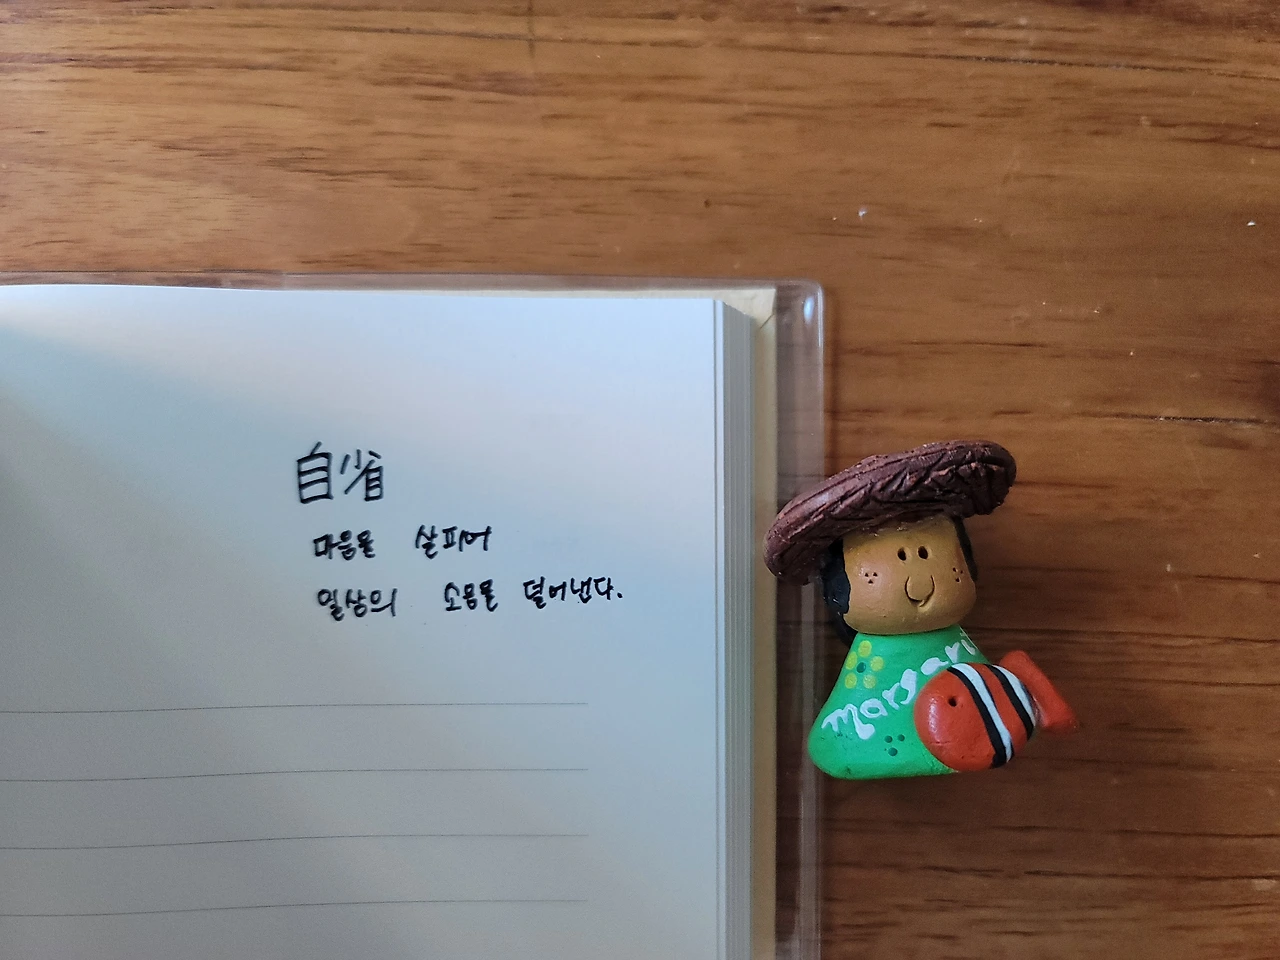 自省
마음을 살피어
일상의 소음을 덜어낸다.
Margarit